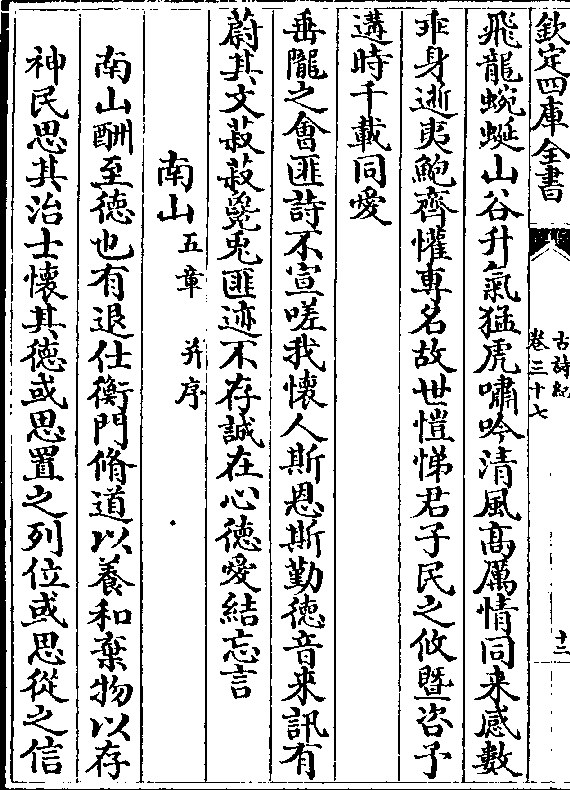 欽定四庫全書
古詩紀
卷三十七
十二
飛龍蜿蜒山谷升氣猛虎嘯吟清風髙厲情同来感數
乖身逝夷鮑齊懽專名故世愷悌君子民之攸暨咨予
遘時千載同愛
垂隴之會匪詩不宣嗟我懷人斯恩斯勤徳音来訊有
蔚其文菽菽㲋兎匪迹不存誠在心徳愛結忘言
南山五章 并序
南山酬至徳也有退仕衡門脩道以養和棄物以存
神民思其治士懷其徳或思置之列位或思從之信